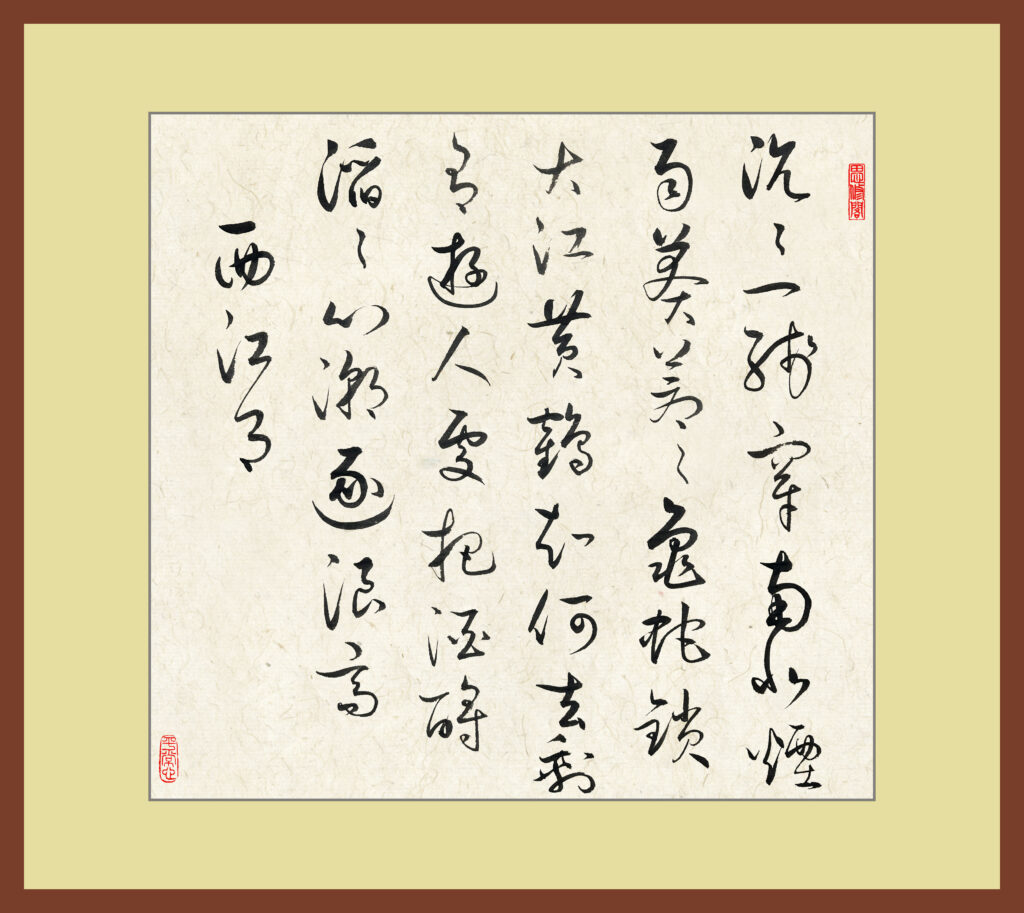 思修閣
沉〻一綫穿南北煙
雨莽蒼〻龜蛇鎖
大江黄鶴知何去剩
有遊人處把酒酹
滔〻心潮逐浪高
西江月
平常心